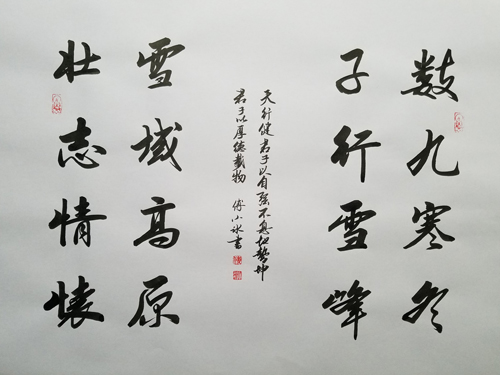 数九寒冬
子行雪峰
天行健君子以自强不息地势坤
君子以厚德载物 傅小水书
雪域高原
壮志情怀